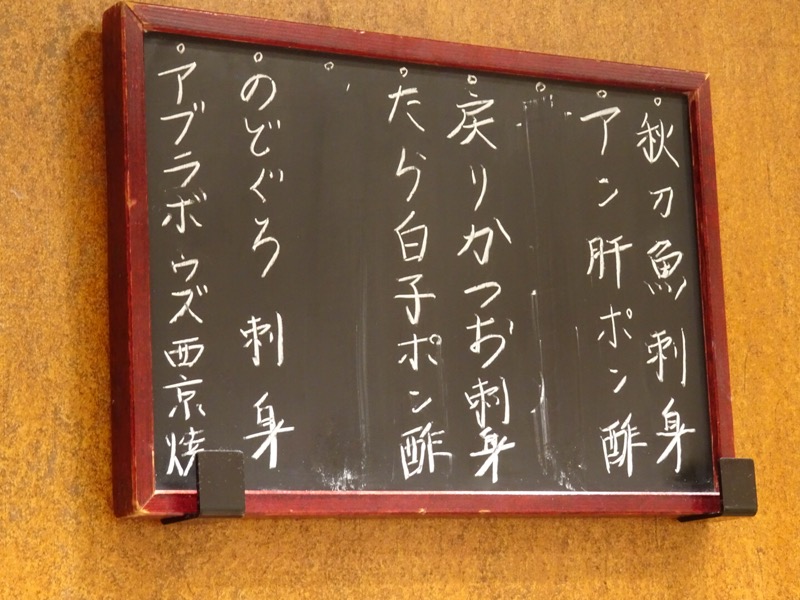 秋刀魚刺身
アン肝ポン酢
戻りかつお刺身
たら白子ポン酢
のどぐろ 刺身
アブラボウズ西京焼